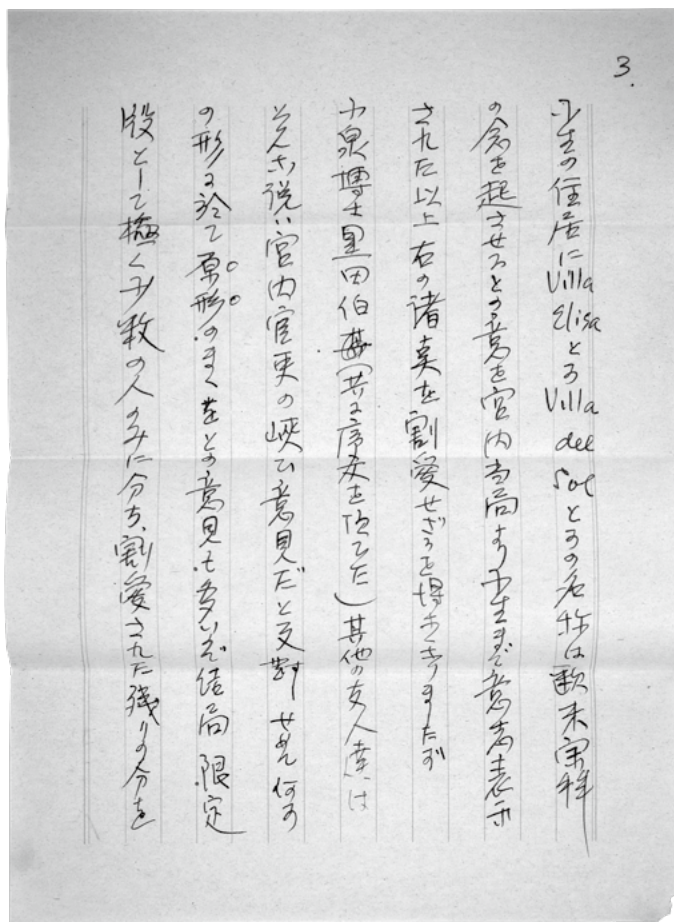 3.
小生の住居にVilla Elisaとか Villa del Solとかの名称は
の念を起させるとの意を宮内当局より小生まで意志表示
された以上右の諸点を割愛せざるを得
小泉博士里田伯(共に序文を頂てた)其他の友人達は
宮内官吏の峡い意見だと反対せられ何
の形に於て原形のまゝをとの意見も多いが結局、限定
版として極く少数の人のみに分ち、割愛された残りの分を